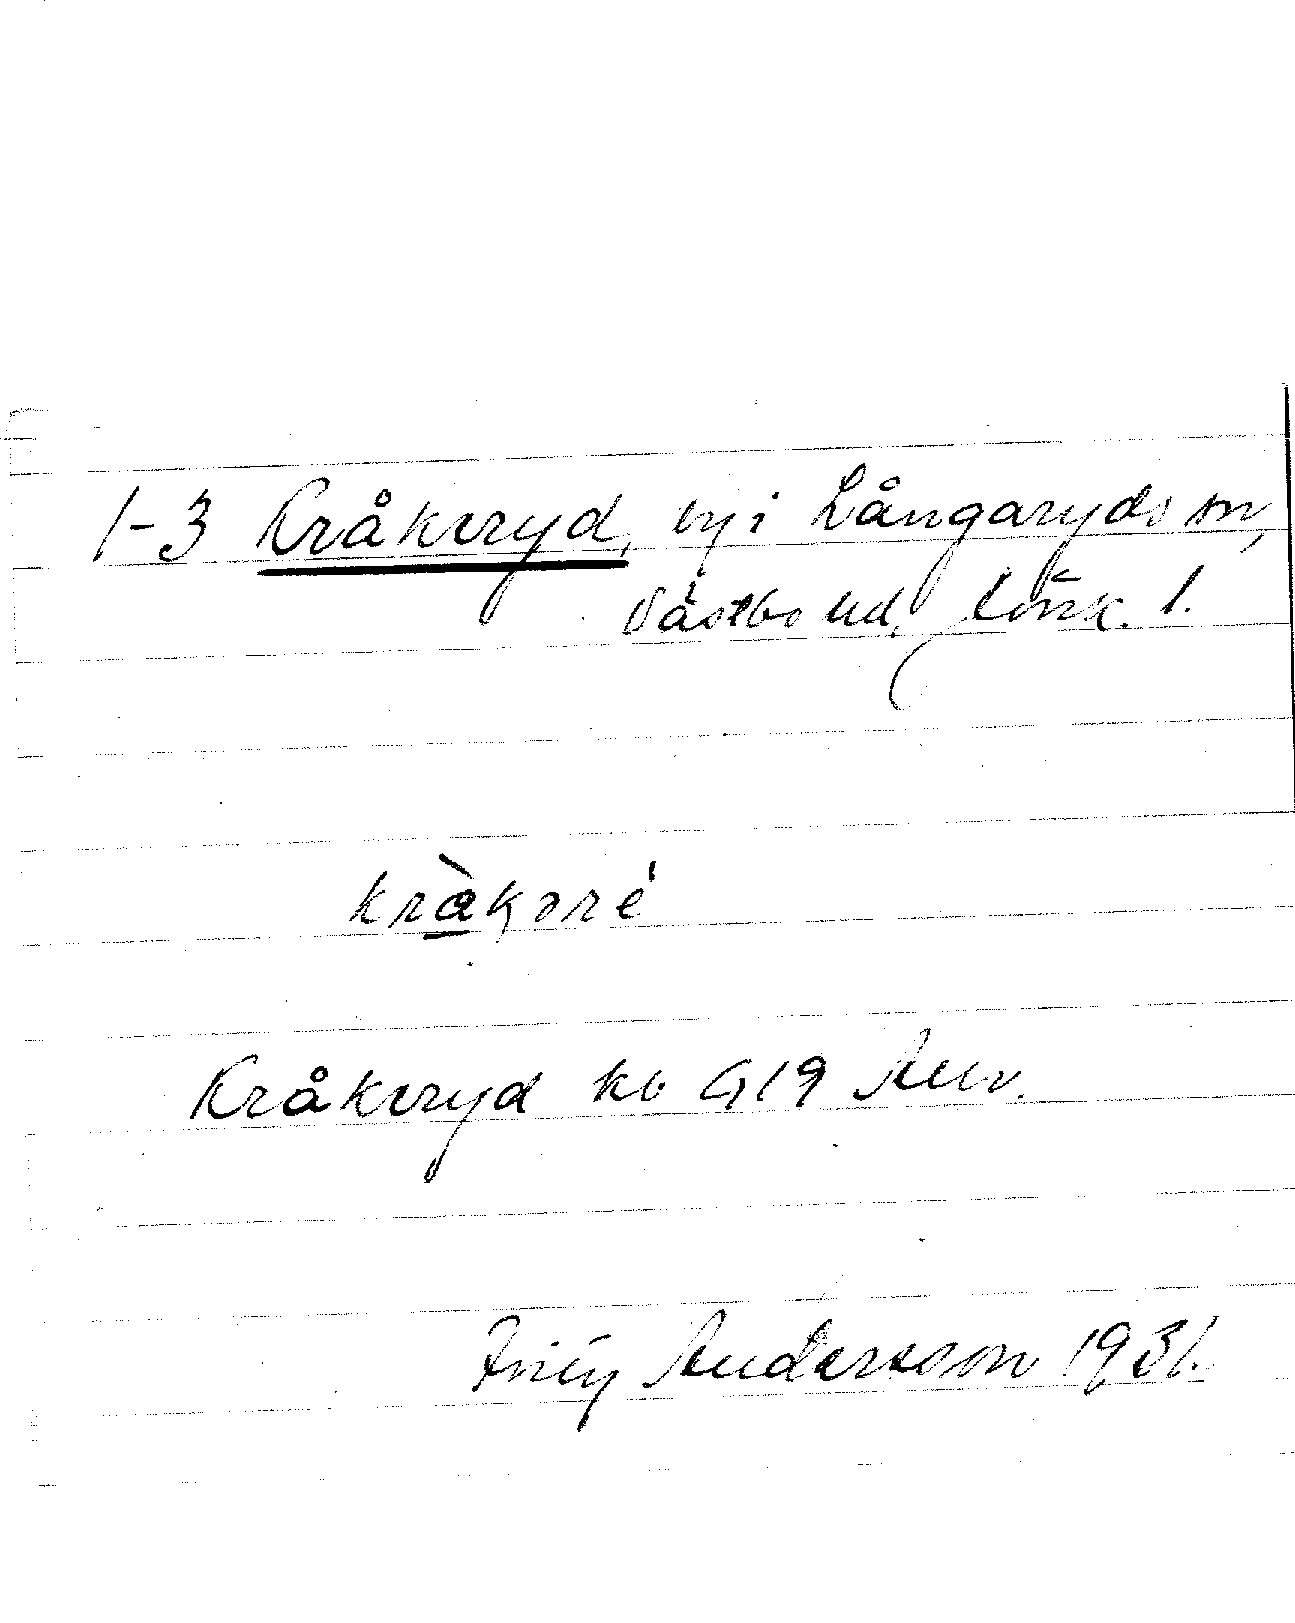 1-3 Kråkeryd, by i Långaryds sn,
Västbo hd, Jönk. l.
kràkəré
Kråkeryd kb G19 Anv.
Andersson 1931.